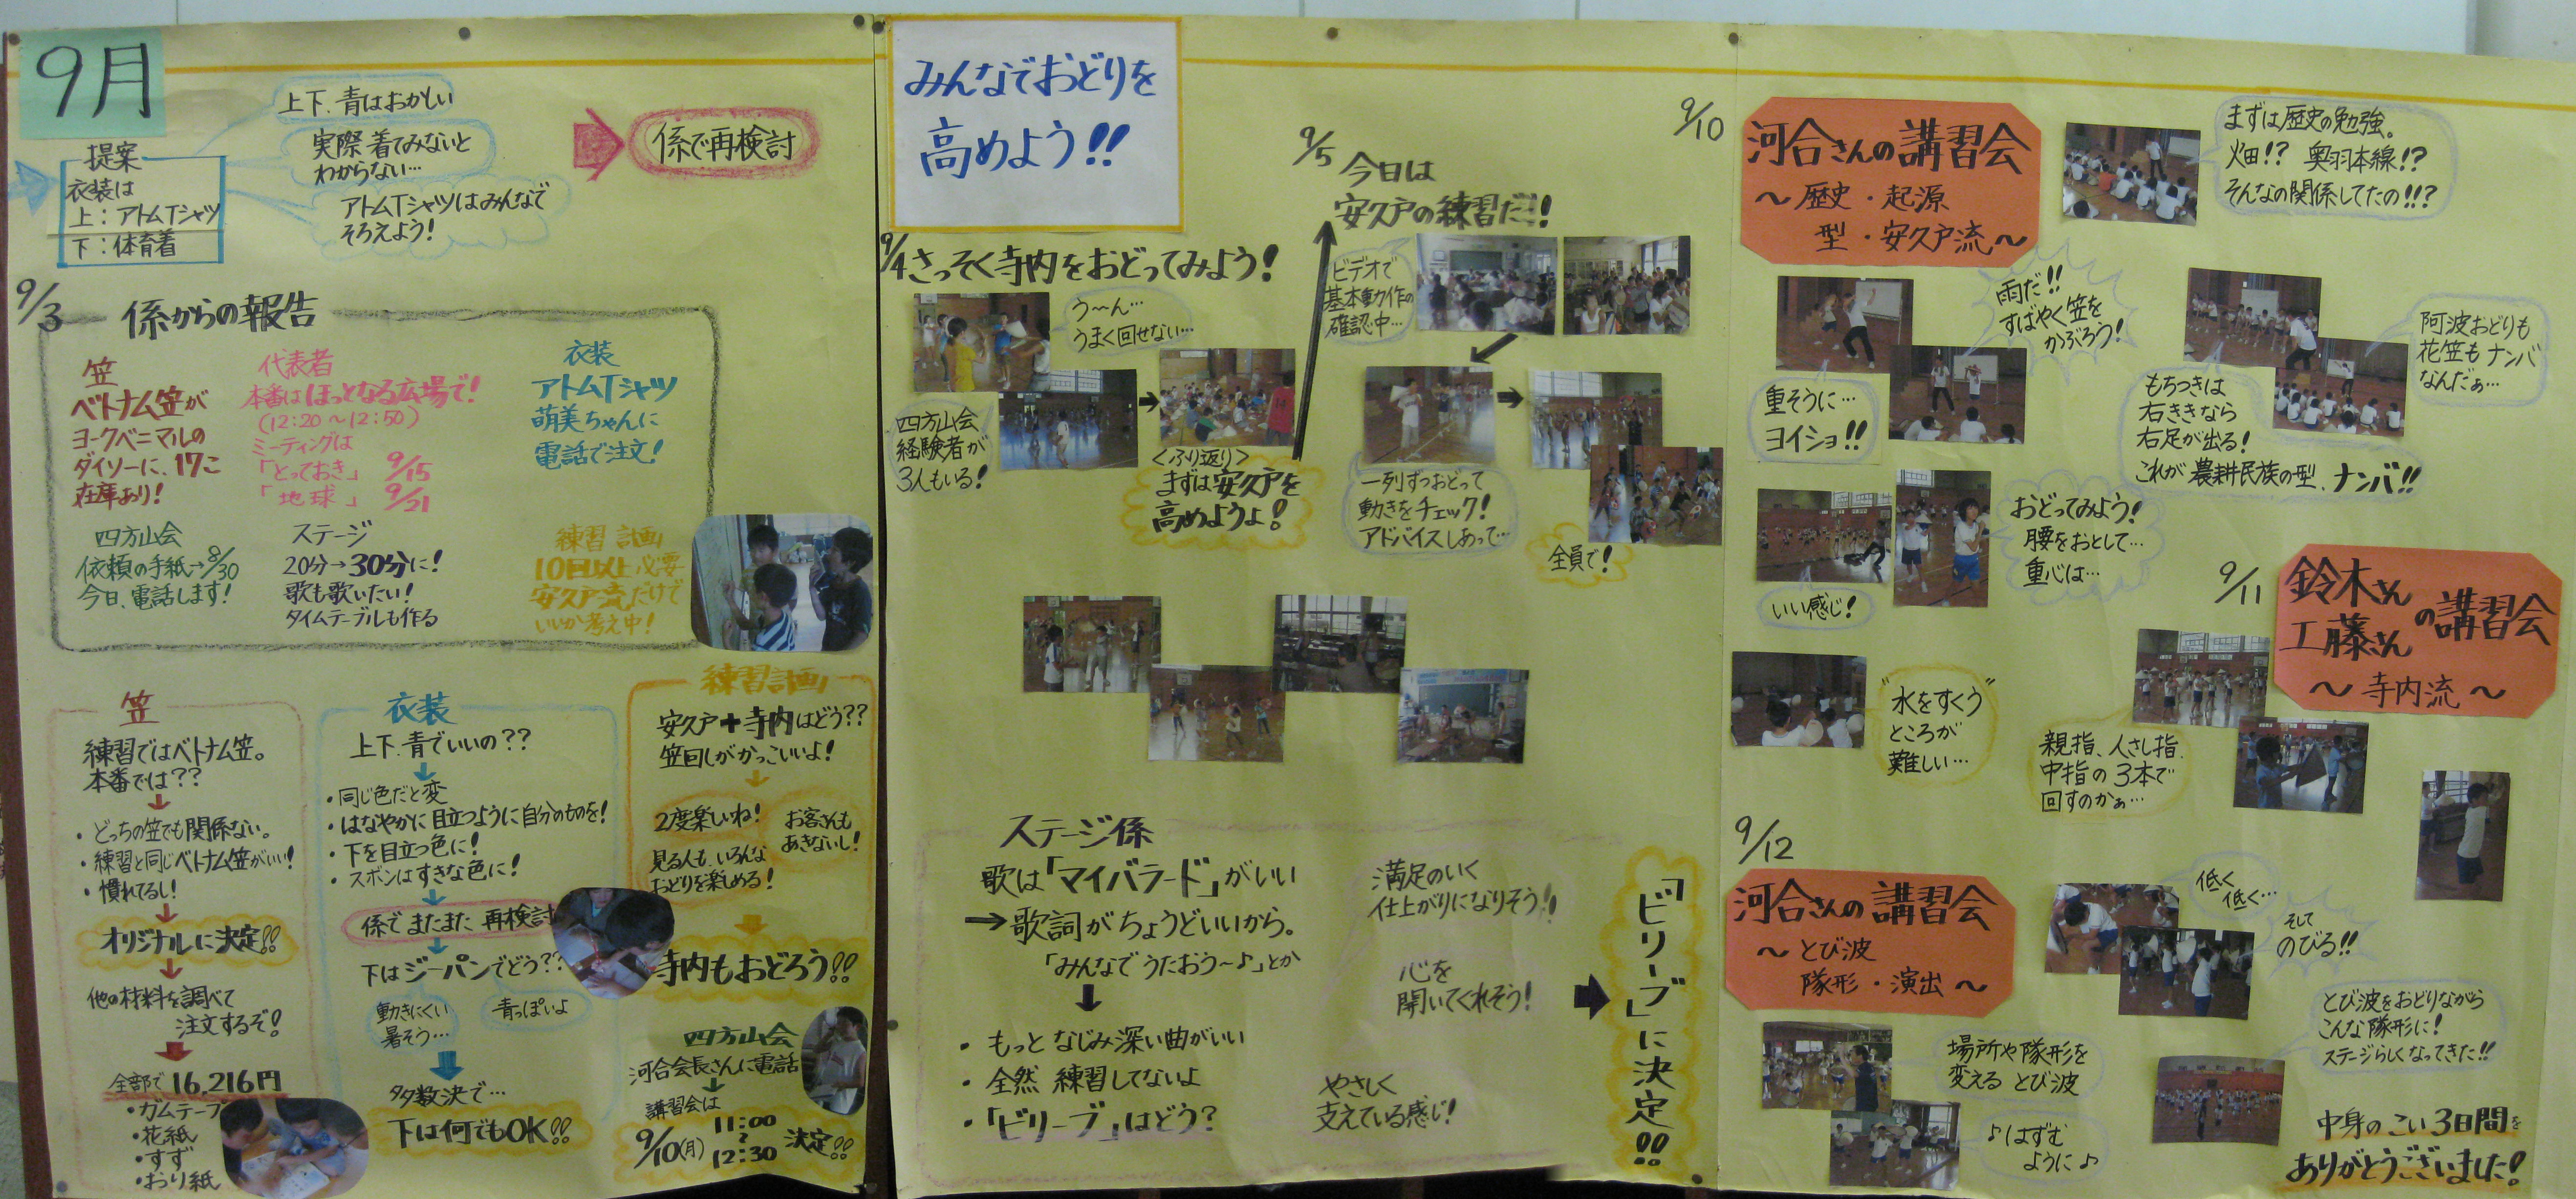 9月
提案
衣装は
上：アトムTシャツ
下：体育着
上下、青はおかしい
実際着てみないと
わからない…
アトムTシャツはみんなで
そろえよう！
係で再検討
9/3
係からの報告
笠
ベトナム笠が
ヨークベニマルの
ダイソーに、17こ
在庫あり！
代表者
本番はほっとなる広場で！
(12:20～12:50)
ミーティングは
「とっておき」 9/15
「地球」 9/21
衣装
アトムTシャツ
萌美ちゃんに
電話で注文！
四方山会
依頼の手紙→8/30
今日、電話します！
ステージ
20分→30分に！
歌も歌いたい！
タイムテーブルも作る
練習計画
10回以上必要
安久戸流だけで
いいか考え中！
笠
練習ではベトナム笠。
本番では？？
・どっちの笠でも関係ない。
・練習と同じベトナム笠がいい！
・慣れてるし！
オリジナルに決定!!
他の材料を調べて
注文するぞ！
全部で16,216円
・ガムテープ
・花紙
・すず
・おり紙
衣装
上下、青でいいの？？
・同じ色だと変
・はなやかに目立つように自分のものを！
・下を目立つ色に！
・ズボンはすきな色に！
係でまたまた再検討
下はジーパンでどう？？
動きにくい
暑そう…
青っぽいよ
多数決で…
下は何でもOK!!
練習計画
安久戸＋寺内はどう？？
笠回しがかっこいいよ！
2度楽しいね！
お客さんも
あきないし！
見る人も、いろんな
おどりを楽しめる！
寺内もおどろう!!
四方山会
河合会長さんに電話
講習会は
9/10(月) 11:00
～
12:30 決定!!
みんなでおどりを
高めよう!!
9/4 さっそく寺内をおどってみよう！
う～ん…
うまく回せない…
四方山会
経験者が
3人もいる！
〈ふり返り〉
まずは安久戸を
高めようよ！
9/5 今日は
安久戸の練習だ！！
ビデオで
基本動作の
確認中…
一列ずつおどって
動きをチェック！
アドバイスしあって…
全員で！
ステージ係
歌は「マイバラード」がいい
→歌詞がちょうどいいから。
「みんなでうたおう～♪」とか
・もっとなじみ深い曲がいい
・全然練習してないよ
・「ビリーブ」はどう？
満足のいく
仕上がりになりそう!!
心を
開いてくれそう！
やさしく
支えている感じ！
「ビリーブ」に決定!!
9/10
河合さんの講習会
～歴史・起源
型・安久戸流～
まずは歴史の勉強。
火田!? 奥羽本線!?
そんなの関係してたの!!?
雨だ!!
すばやく笠を
かぶろう！
重そうに…
ヨイショ!!
阿波おどりも
花笠もナンバ
なんだぁ…
もちつきは
右ききなら
右足が出る！
これが農耕民族の型、ナンバ!!
おどってみよう！
腰をおとして…
重心は…
いい感じ！
"水をすくう"
ところが
難しい…
9/11
鈴木さん
工藤さん
の講習会
～寺内流～
親指、人さし指、
中指の3本で
回すのかぁ…
9/12
河合さんの講習会
～とび波
隊形・演出～
低く
低く…
そして
のびる!!
とび波をおどりながら
こんな隊形に！
ステージらしくなってきた!!
場所や隊形を
変える とび波
♪はずむ
ように♪
中身のこい3日間を
ありがとうございました！